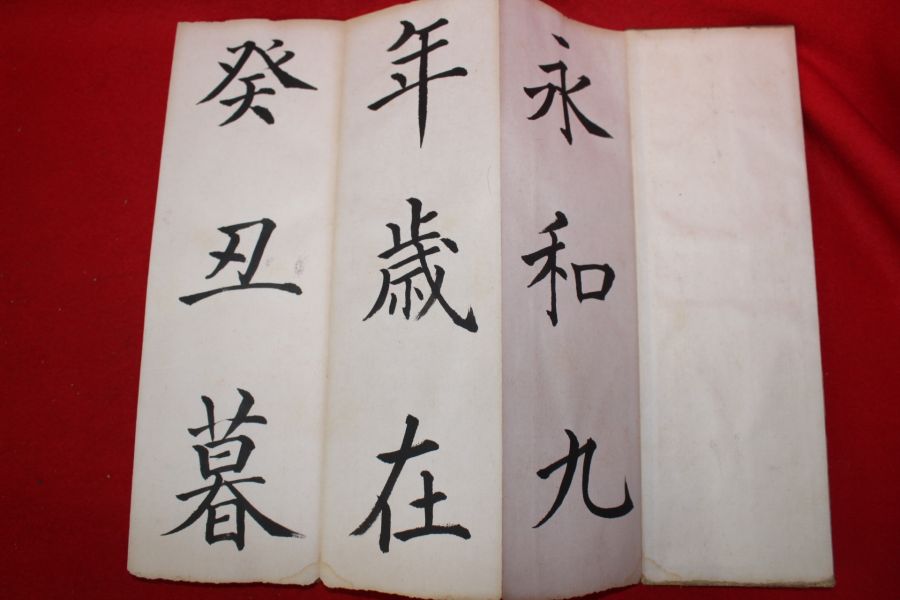 永和九
年歳在
癸丑暮